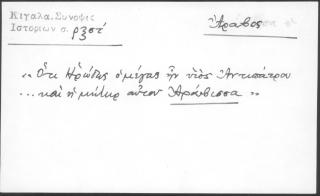 Κιγάλα, Σύνοψις
Ἱστοριῶν σ. ρξστ´
Ἄραβος
" Ὅτι Ἡρώδης ὁ μέγας ἦν υἱὸς Ἀντιπάτρου
... καὶ ἡ μήτηρ αὐτοῦ Ἀράβισσα "